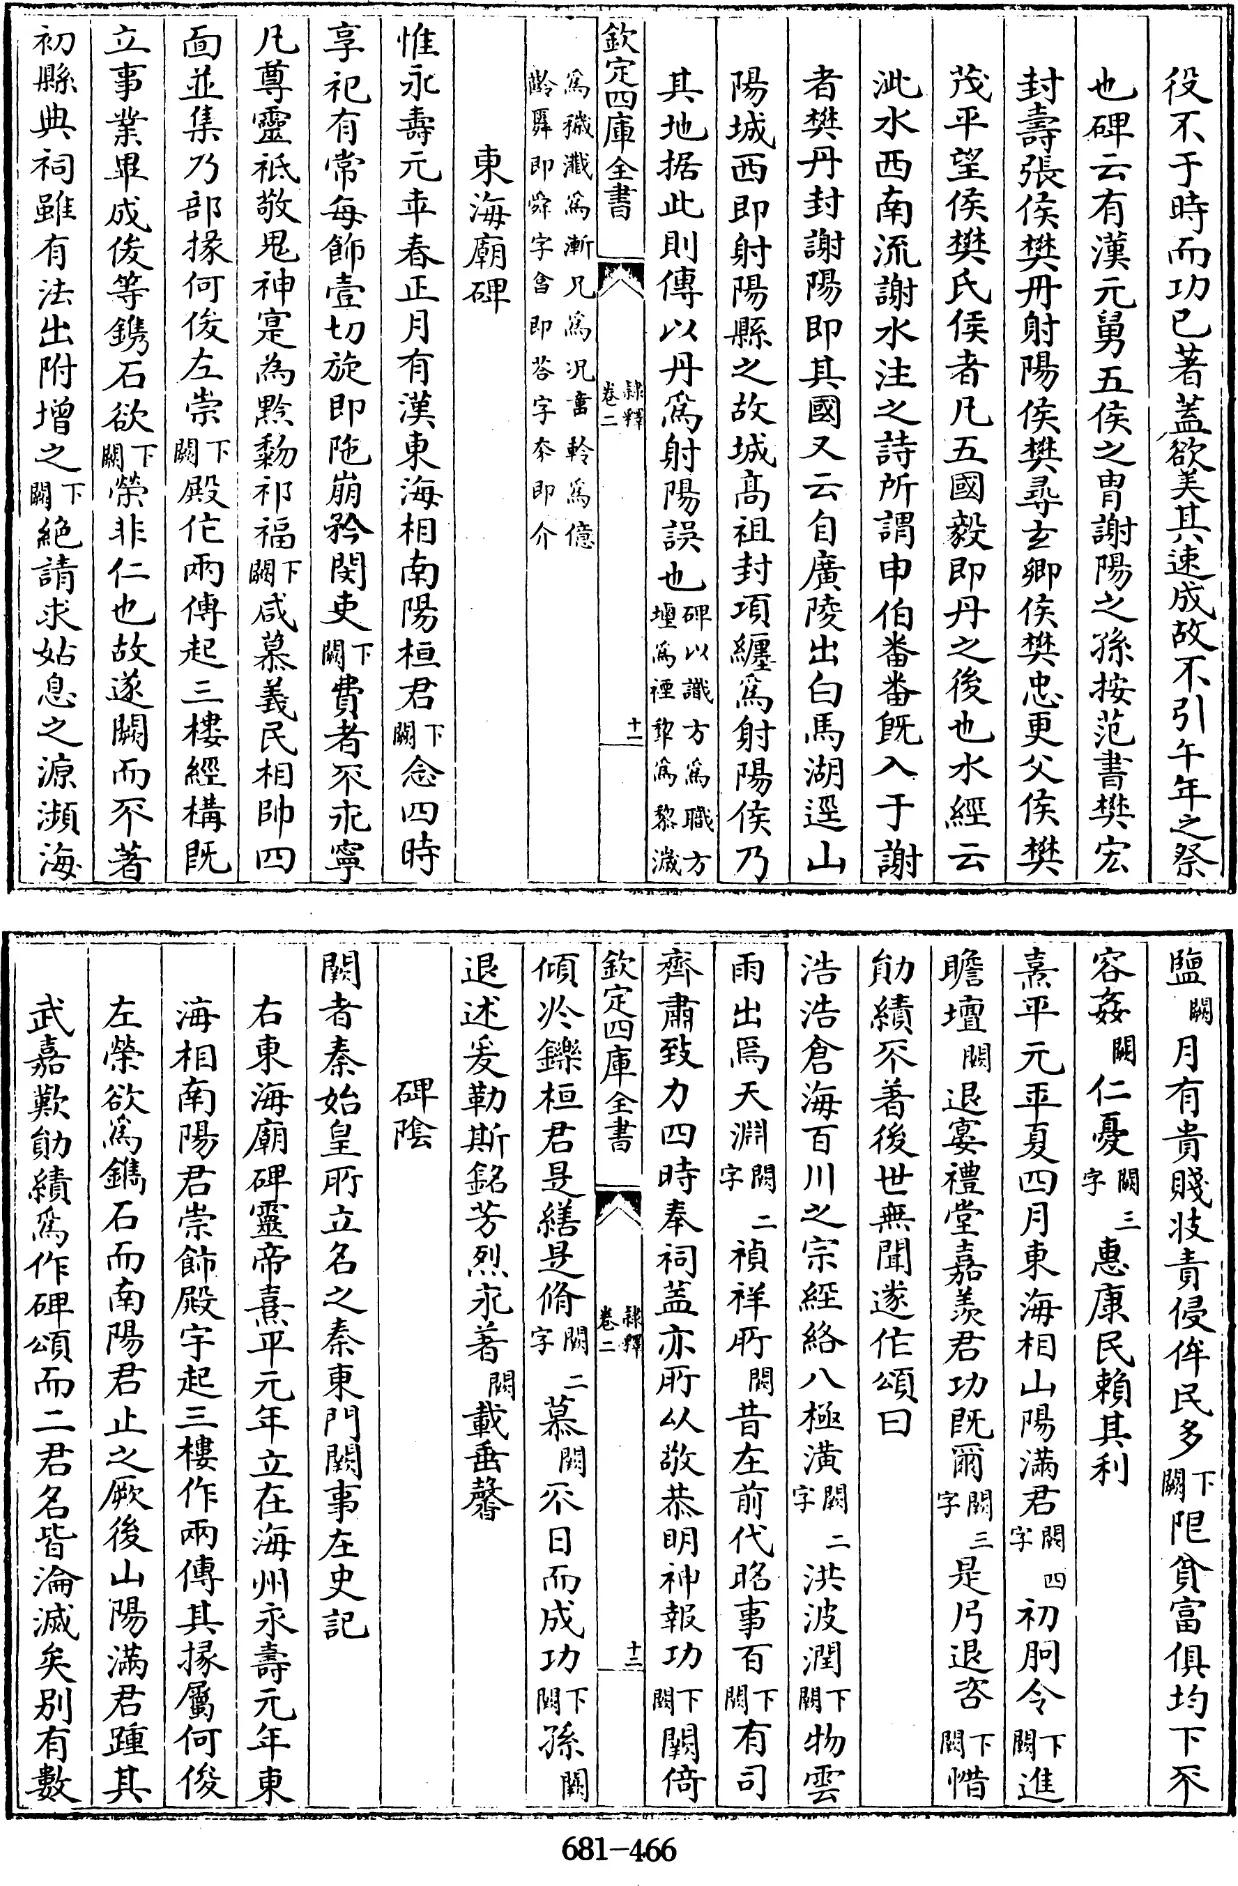 役不于時而功已著蓋欲美其速成故不引午年之祭
也碑云有漢元舅五侯之胄謝陽之孫按范書樊宏
封壽張侯樊丹射陽侯樊尋玄鄉侯樊忠更父侯樊
茂平望侯樊氏侯者凡五國毅即丹之後也水經云
泚水西南流謝水注之詩所謂申伯番番既入于謝
者樊丹封謝陽即其國又云自廣陵出白馬湖逕山
陽城西即射陽縣之故城高祖封項纏為射陽侯乃
其地据此則傳以丹為射陽誤也碑以識方為職方壇為禋犂為黎濊
欽定四庫全書 隸釋卷二 十二
為穢瀸為漸兄為况𤲸軨為億齡羿即舜字會即荅字夰即介
東海廟碑
惟永壽元年春正月有漢東海相南陽桓君下闕念四時
享祀有常每飾壹切旋即陁崩矜閔吏下闕費者不永寧
凡尊靈祇敬鬼神寔為黔黎祁福下闕咸慕義民相帥四
面並集乃部掾何俊左崇下闕殿作兩傳起三樓經構既
立事業畢成俊等鐫石欲下闕榮非仁也故遂闕而不著
初縣典祠雖有法出附增之下闕絶請求姑息之源瀕海
鹽闕月有貴賤收責侵侔民多下闕陀貧富俱均下不
容姦闕仁憂闕三字惠康民賴其利
熹平元年夏四月東海相山陽滿君闕四字初朐令下闕進
瞻壇闕退宴禮堂嘉羡君功既爾闕三字是乃退咨下闕惜
勛績不著後世無聞遂作頌曰
浩浩倉海百川之宗經絡八極潢闕二字洪波潤下闕物雲
雨出焉天淵闕二字禎祥所闕昔在前代昭事百下闕有司
齊肅致力四時奉祠蓋亦所以敬恭明神報功下闕闕倚
欽定四庫全書 隸釋卷二 十三
傾于鑠桓君是繕是脩闕二字慕闕不日而成功下闕孫闕
退述爰勒斯銘芳烈永著闕載垂馨
碑陰
闕者秦始皇所立名之秦東門闕事在史記
右東海廟碑靈帝熹平元年立在海州永壽元年東
海相南陽君崇飾殿宇起三樓作兩傳其掾屬何俊
左榮欲為鐫石而南陽君止之厥後山陽滿君踵其
武嘉歎勛績為作碑頌而二君名皆淪滅矣别有數
681-466